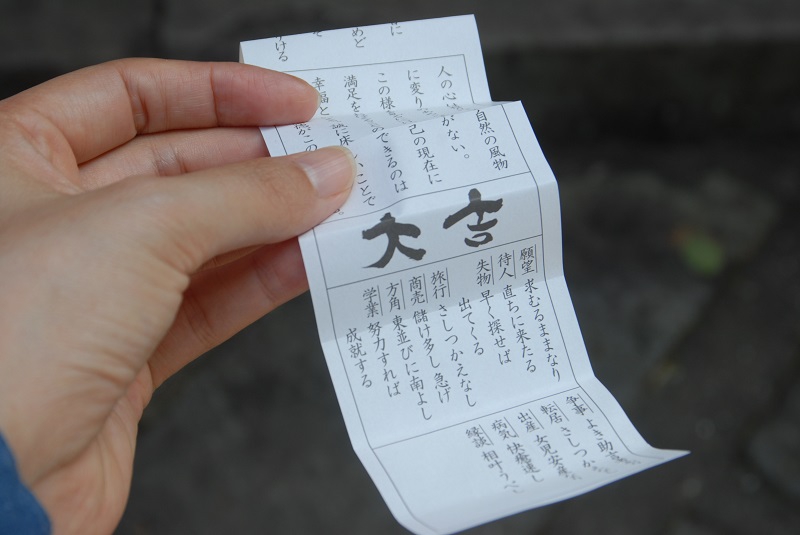 に
めど
せ
うける
自然の風物
人の心
がない。
に変り
己の現在に
この様
のできるのは
満足を
幸福と
に床しいことで
大吉
願望 求むるままなり
待人 直ちに来たる
失物 早く探せば
出てくる
旅行 さしつかえなし
商売 儲け多し 急げ
方角 東並びに南よし
学業 努力すれば
成就する
争事 よき助言
転居 さしつか
出産 女児安産
病気 快癒速し
縁談 相叶うべし